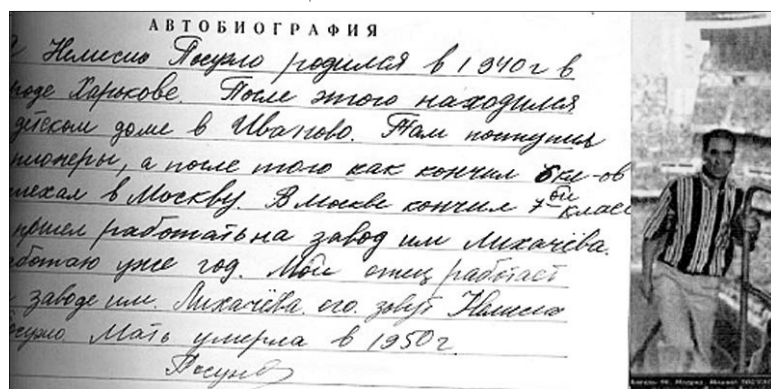 АВТОБИОГРАФИЯ
Немесио Посуэло родился в 1940 г в
роде Харькове. После этого находился
детском доме в Иваново. Там поступил
пионеры, а после того как кончил 6 кл-ов
уехал в Москву. В Москве кончил 7ой класс
пришел работать на завод им Лихачёва.
работаю уже год. Мой отец работает
заводе им. Лихачёва. его зовут Немесио
Посуэло Мать умерла в 1950 г